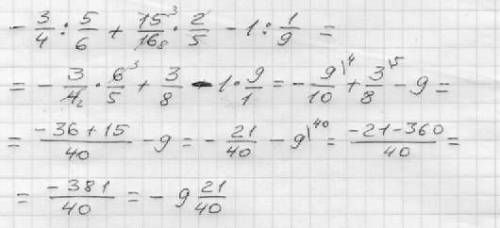 - 3/4 : 5/6 + 15³/16₈ · 2/5 - 1 : 1/9 =
= - 3/4₂ · 6³/5 + 3/8 - 1 · 9/1 = - 9/10 |⁴ + 3/8 |⁵ - 9 =
= (-36 + 15)/40 - 9 = - 21/40 - 9 |⁴⁰ = (-21 - 360)/40 =
= -381/40 = - 9 21/40